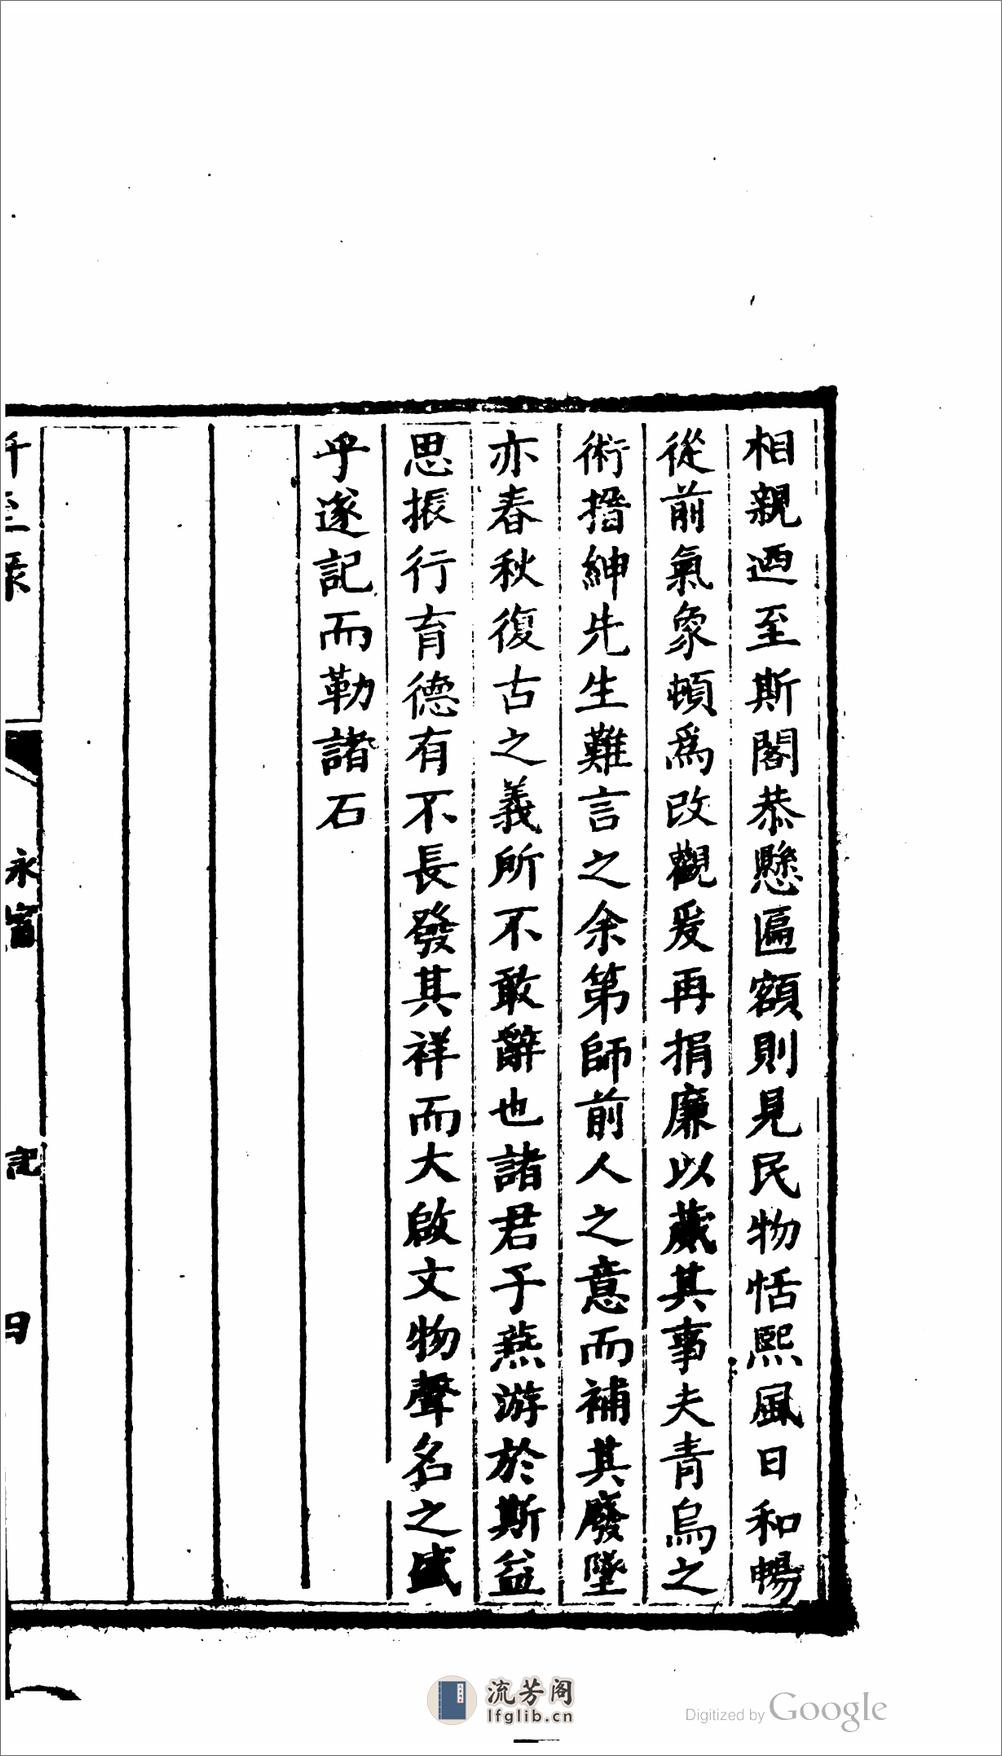 相親迺至斯閣恭懸匾額則見民物恬熙風日和暢
從前氣象頓爲改觀爰再捐廉以蕆其事夫青烏之
術搢紳先生難言之余第師前人之意而補其廢墜
亦春秋復古之義所不敢辭也諸君子燕游於斯益
思振行育德有不長發其祥而大啟文物聲名之盛
乎遂記而勒諸石
永甯
記
流芳阁
lfglib.cn
Digitized by Google